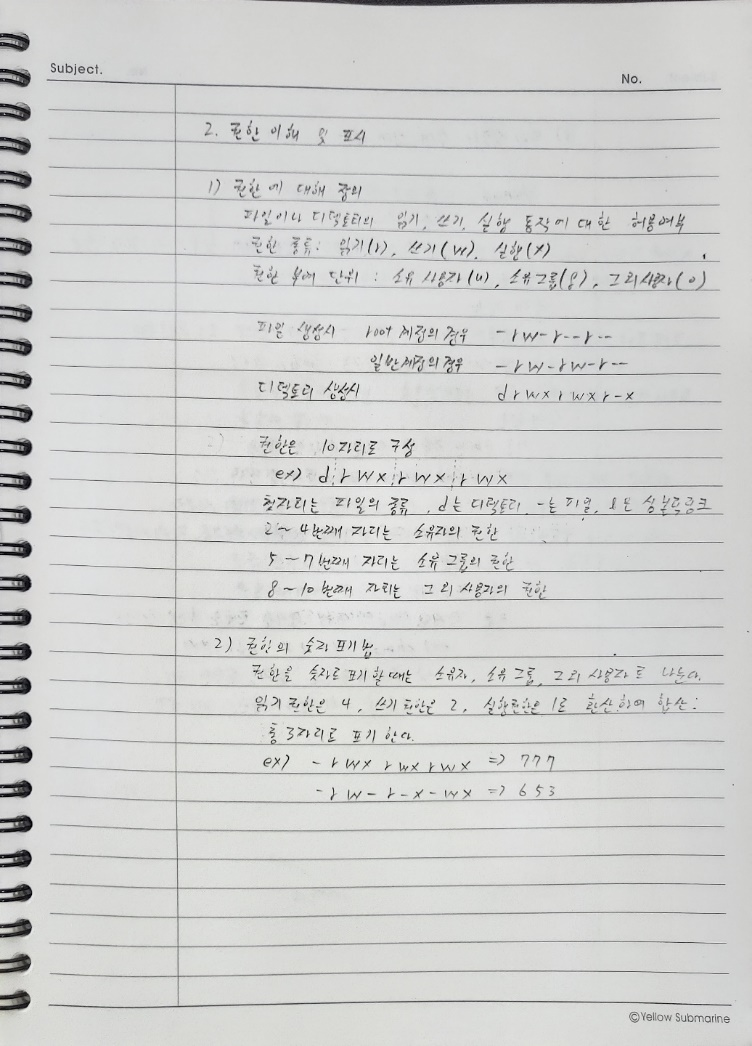 Subject.
No.
2. 권한 이해 및 표시
1) 권한에 대해 정의
파일이나 디렉토리의 읽기, 쓰기, 실행 동작에 대한 허용여부
권한 종류: 읽기(r), 쓰기(w), 실행(x)
권한 부여 단위 : 소유 사용자(u), 소유그룹(g), 그외사용자(o)
파일 생성시 root 계정의 경우 -rw-r--r--
일반계정의 경우 -rw-rw-r--
디렉토리 생성시 drwxrwxr-x
권한은 10자리로 구성
ex) d rwx rwx rwx
첫자리는 파일의 종류, d는 디렉토리, -는 파일, l은 심볼릭링크
2~4번째 자리는 소유자의 권한
5~7번째 자리는 소유그룹의 권한
8~10번째 자리는 그 외 사용자의 권한
2) 권한의 숫자 표기법
권한을 숫자로 표기할때는 소유자, 소유그룹, 그외 사용자로 나눈다.
읽기권한은 4, 쓰기권한은 2, 실행권한은 1로 환산하여 합산:
총 3자리로 표기한다.
ex) -rwx rwx rwx => 777
-rw-r-x-wx => 653
©Yellow Submarine